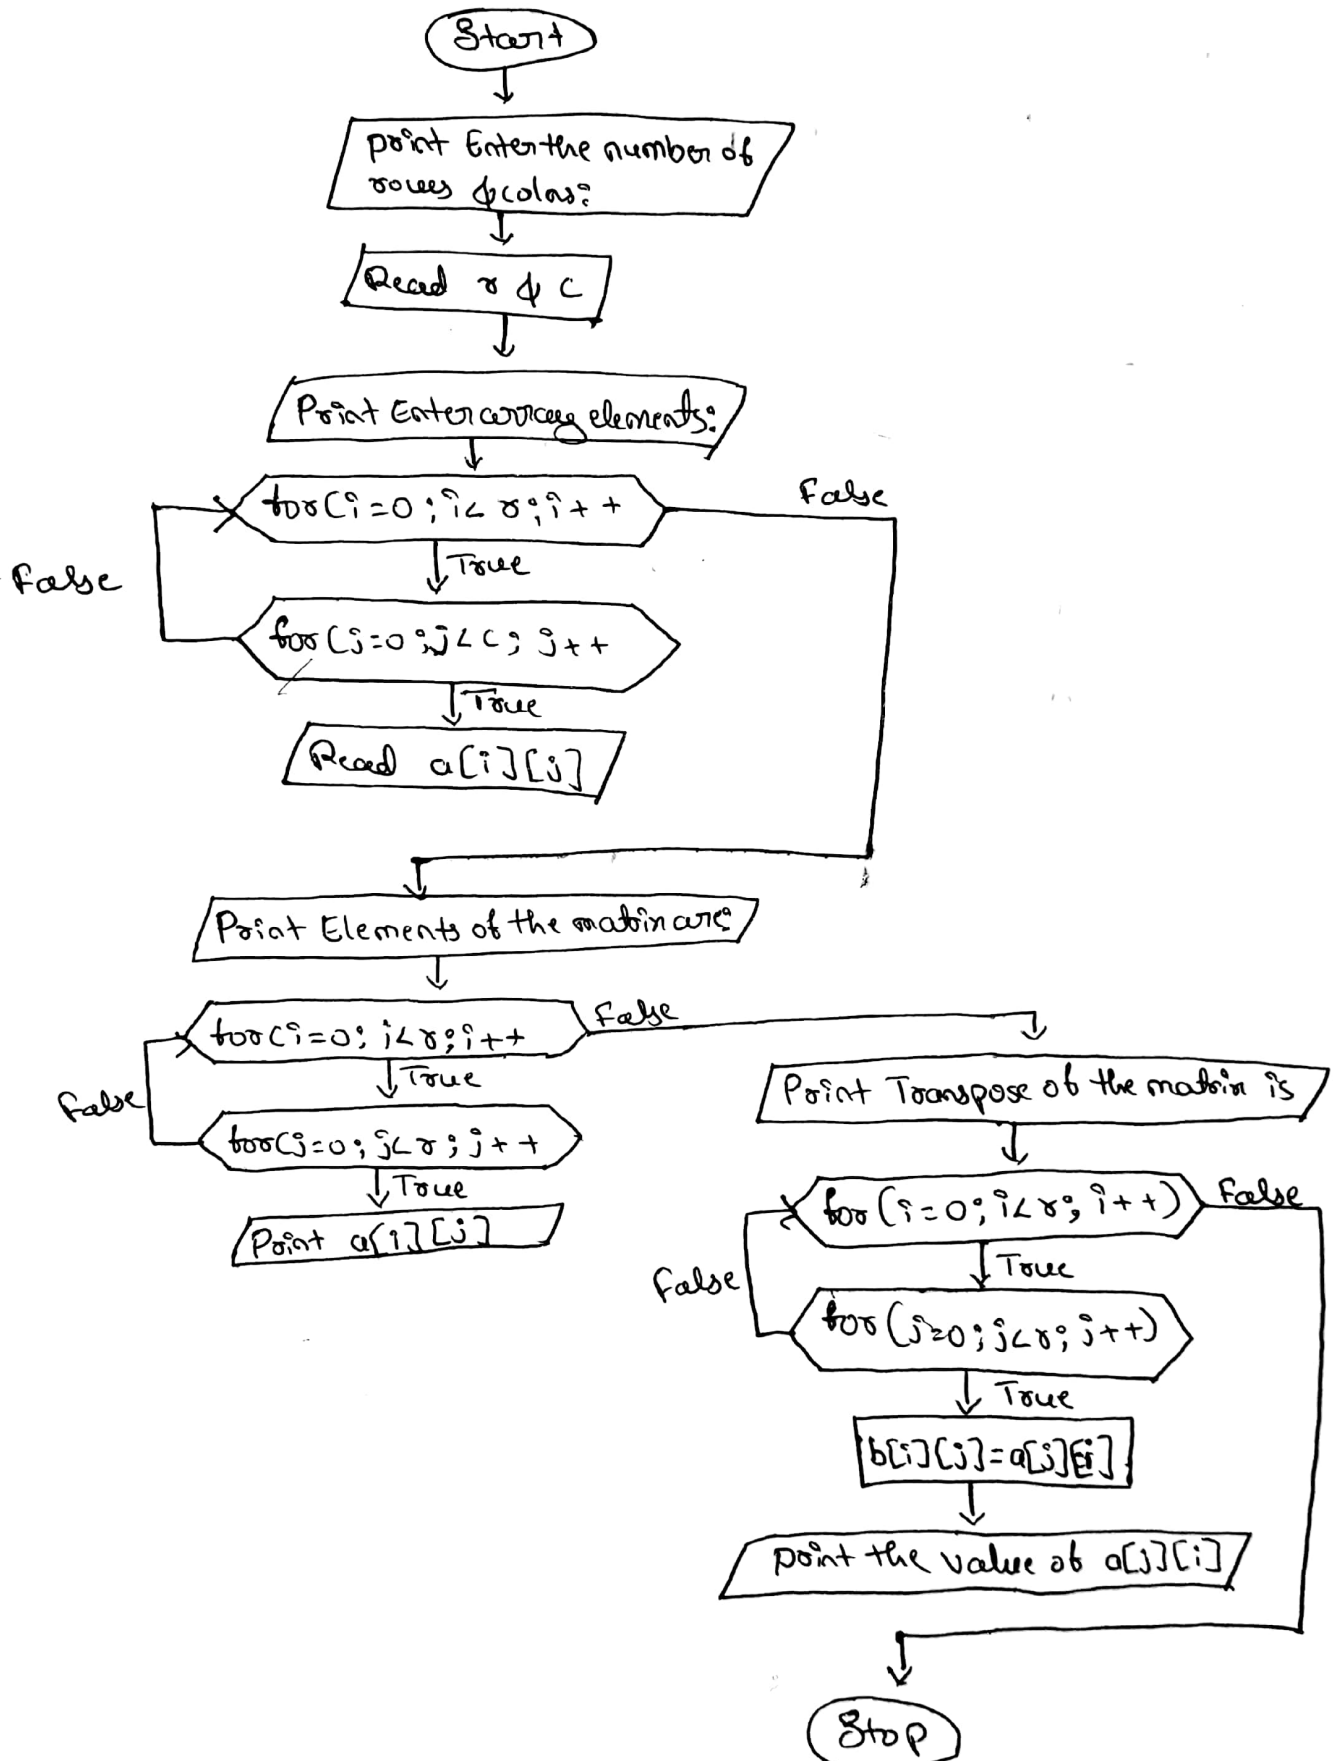 Start
print Enter the number of
rows & colns:
Read r & c
Print Enter array elements:
for(i=0; i<r; i++
False
True
False
for(j=0; j<c; j++
True
Read a[i][j]
Print Elements of the matrix are:
for(i=0; i<r; i++
False
True
False
for(j=0; j<r; j++
True
Print a[i][j]
Print Transpose of the matrix is
for(i=0; i<r; i++)
False
True
False
for(j=0; j<r; j++)
True
b[i][j]=a[j][i]
print the value of a[j][i]
Stop